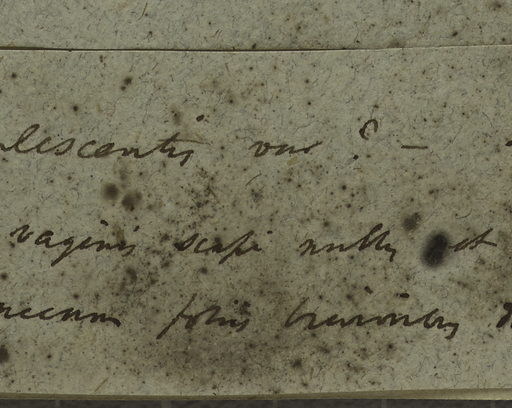 lescentis var? —
vaginis scapi nullis et
foliis brevioribus